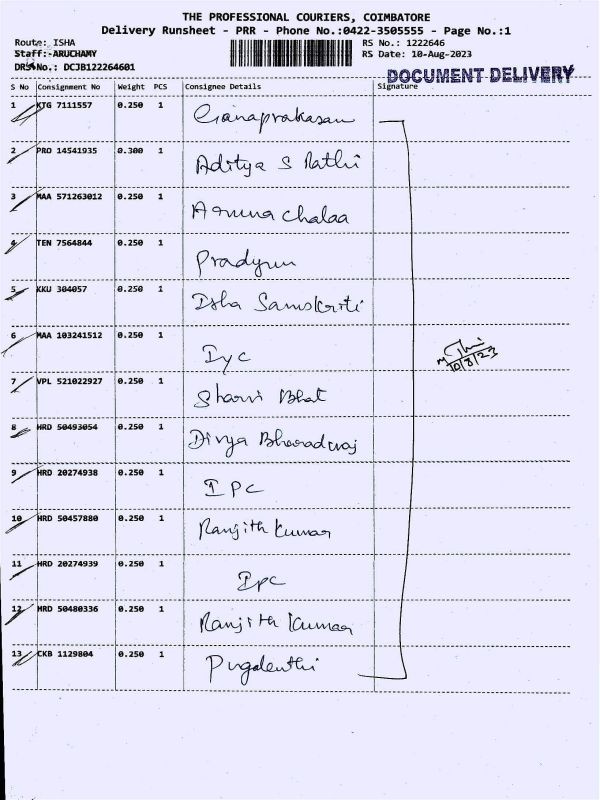 THE PROFESSIONAL COURIERS, COIMBATORE
Delivery Runsheet - PRR - Phone No.:0422-3505555 - Page No.:1
Route: ISHA RS No.: 1222646
Staff:-ARUCHAMY RS Date: 10-Aug-2023
DRS No.: DCJB122264601
DOCUMENT DELIVERY
S No Consignment No Weight PCS Consignee Details Signature
1 KTG 7111557 0.250 1 Gianaprakasan
2 PRO 14541935 0.300 1 Aditya S Rathi
3 MAA 571263012 0.250 1 Arunachalaa
4 TEN 7564844 0.250 1 Pradyun
5 KKU 304057 0.250 1 Isha Samskriti
6 MAA 103241512 0.250 1 Iyc
10/8/23
7 VPL 521022927 0.250 1 Sharvi Bhat
8 HRD 50493054 0.250 1 Divya Bharadwaj
9 HRD 20274938 0.250 1 IPC
10 HRD 50457880 0.250 1 Ranjith Kumar
11 HRD 20274939 0.250 1 Ipc
12 HRD 50480336 0.250 1 Ranjith Kumar
13 CKB 1129804 0.250 1 Pugalenthi